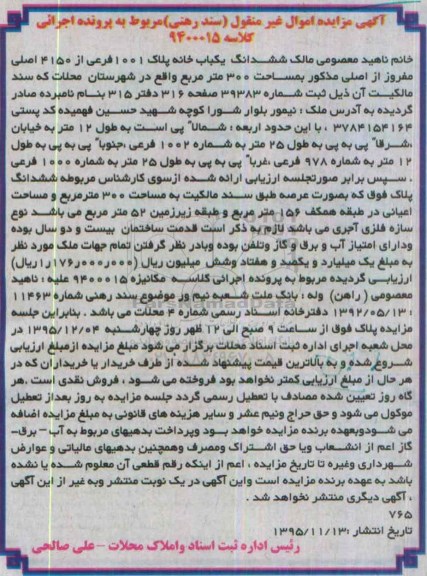 آگهی مزایده اموال غیر منقول (سند رهنی)مربوط به پرونده اجرائی
کلاسه ۹۴۰۰۰۱۵
خانم ناهید معصومی مالک ششدانگ یکباب خانه پلاک ۱۰۰۱فرعی از ۴۱۵۰ اصلی
مفروز از اصلی مذکور بمساحت ۳۰۰ متر مربع واقع در شهرستان محلات که سند
مالکیت آن ذیل ثبت شماره ۳۹۳۸۳ صفحه ۳۱۶ دفتر ۳۱۵ بنام نامبرده صادر
گردیده به آدرس ملک : نیمور بلوار شورا کوچه شهید حسین فهمیده کد پستی
۳۷۸۴۱۵۴۱۶۴ ، با این حدود اربعه : شمالاً پی است به طول ۱۲ متر به خیابان
،شرقاً پی به پی به طول ۲۵ متر به شماره ۱۰۰۲ فرعی ،جنوباً پی به پی به طول
۱۲ متر به شماره ۹۷۸ فرعی ،غرباً پی به پی به طول ۲۵ متر به شماره ۱۰۰۰ فرعی
. سپس برابر صورتجلسه ارزیابی ارائه شده ازسوی کارشناس مربوطه ششدانگ
پلاک فوق که بصورت عرصه طبق سند مالکیت به مساحت ۳۰۰ مترمربع و مساحت
اعیانی در طبقه همکف ۱۵۶ متر مربع و طبقه زیرزمین ۵۲ متر مربع می باشد نوع
سازه فلزی آجری می باشد لازم به ذکر است قدمت ساختمان بیست و دو سال بوده
ودارای امتیاز آب و برق و گاز وتلفن بوده وبادر نظر گرفتن تمام جهات ملک مورد نظر
به مبلغ یک میلیارد و یکصد و هفتاد وشش میلیون ریال (۱٫۱۷۶٫۰۰۰٫۰۰۰ریال)
ارزیابی گردیده مربوط به پرونده اجرائی کلاسه مکانیزه ۹۴۰۰۰۱۵ علیه : ناهید
معصومی (راهن) وله : بانک ملت شعبه نیم ور موضوع سند رهنی شماره ۱۱۴۶۳
: ۱۳۹۲/۰۵/۱۳ دفترخانه اسناد رسمی شماره ۴ محلات می باشد . بنابراین جلسه
مزایده پلاک فوق از ساعت ۹ صبح الی ۱۲ ظهر روز چهارشنبه ۱۳۹۵/۱۲/۰۴ در
محل شعبه اجرای اداره ثبت اسناد محلات برگزار می شود مبلغ مزایده ازمبلغ ارزیابی
شروع شده و به بالاترین قیمت پیشنهاد شده از طرف خریدار یا خریداران که در
هر حال از مبلغ ارزیابی کمتر نخواهد بود فروخته می شود ، فروش نقدی است .هر
گاه روز تعیین شده مصادف با تعطیل رسمی گردد جلسه مزایده به روز بعداز تعطیل
موکول می شود و حق حراج ونیم عشر و سایر هزینه های قانونی به مبلغ مزایده اضافه
می شودوبعهده برنده مزایده خواهد بود وپرداخت بدهیهای مربوط به آب – برق-
گاز اعم از انشعاب ویا حق اشتراک ومصرف وهمچنین بدهیهای مالیاتی و عوارض
شهرداری وغیره تا تاریخ مزایده ، اعم از اینکه رقم قطعی آن معلوم شده یا نشده
باشد به عهده برنده مزایده است واین آگهی در یک نوبت منتشر وبه غیر از این آگهی
، آگهی دیگری منتشر نخواهد شد .
۷۶۵
تاریخ انتشار :۱۳۹۵/۱۱/۱۳
رئیس اداره ثبت اسناد واملاک محلات –علی صالحی